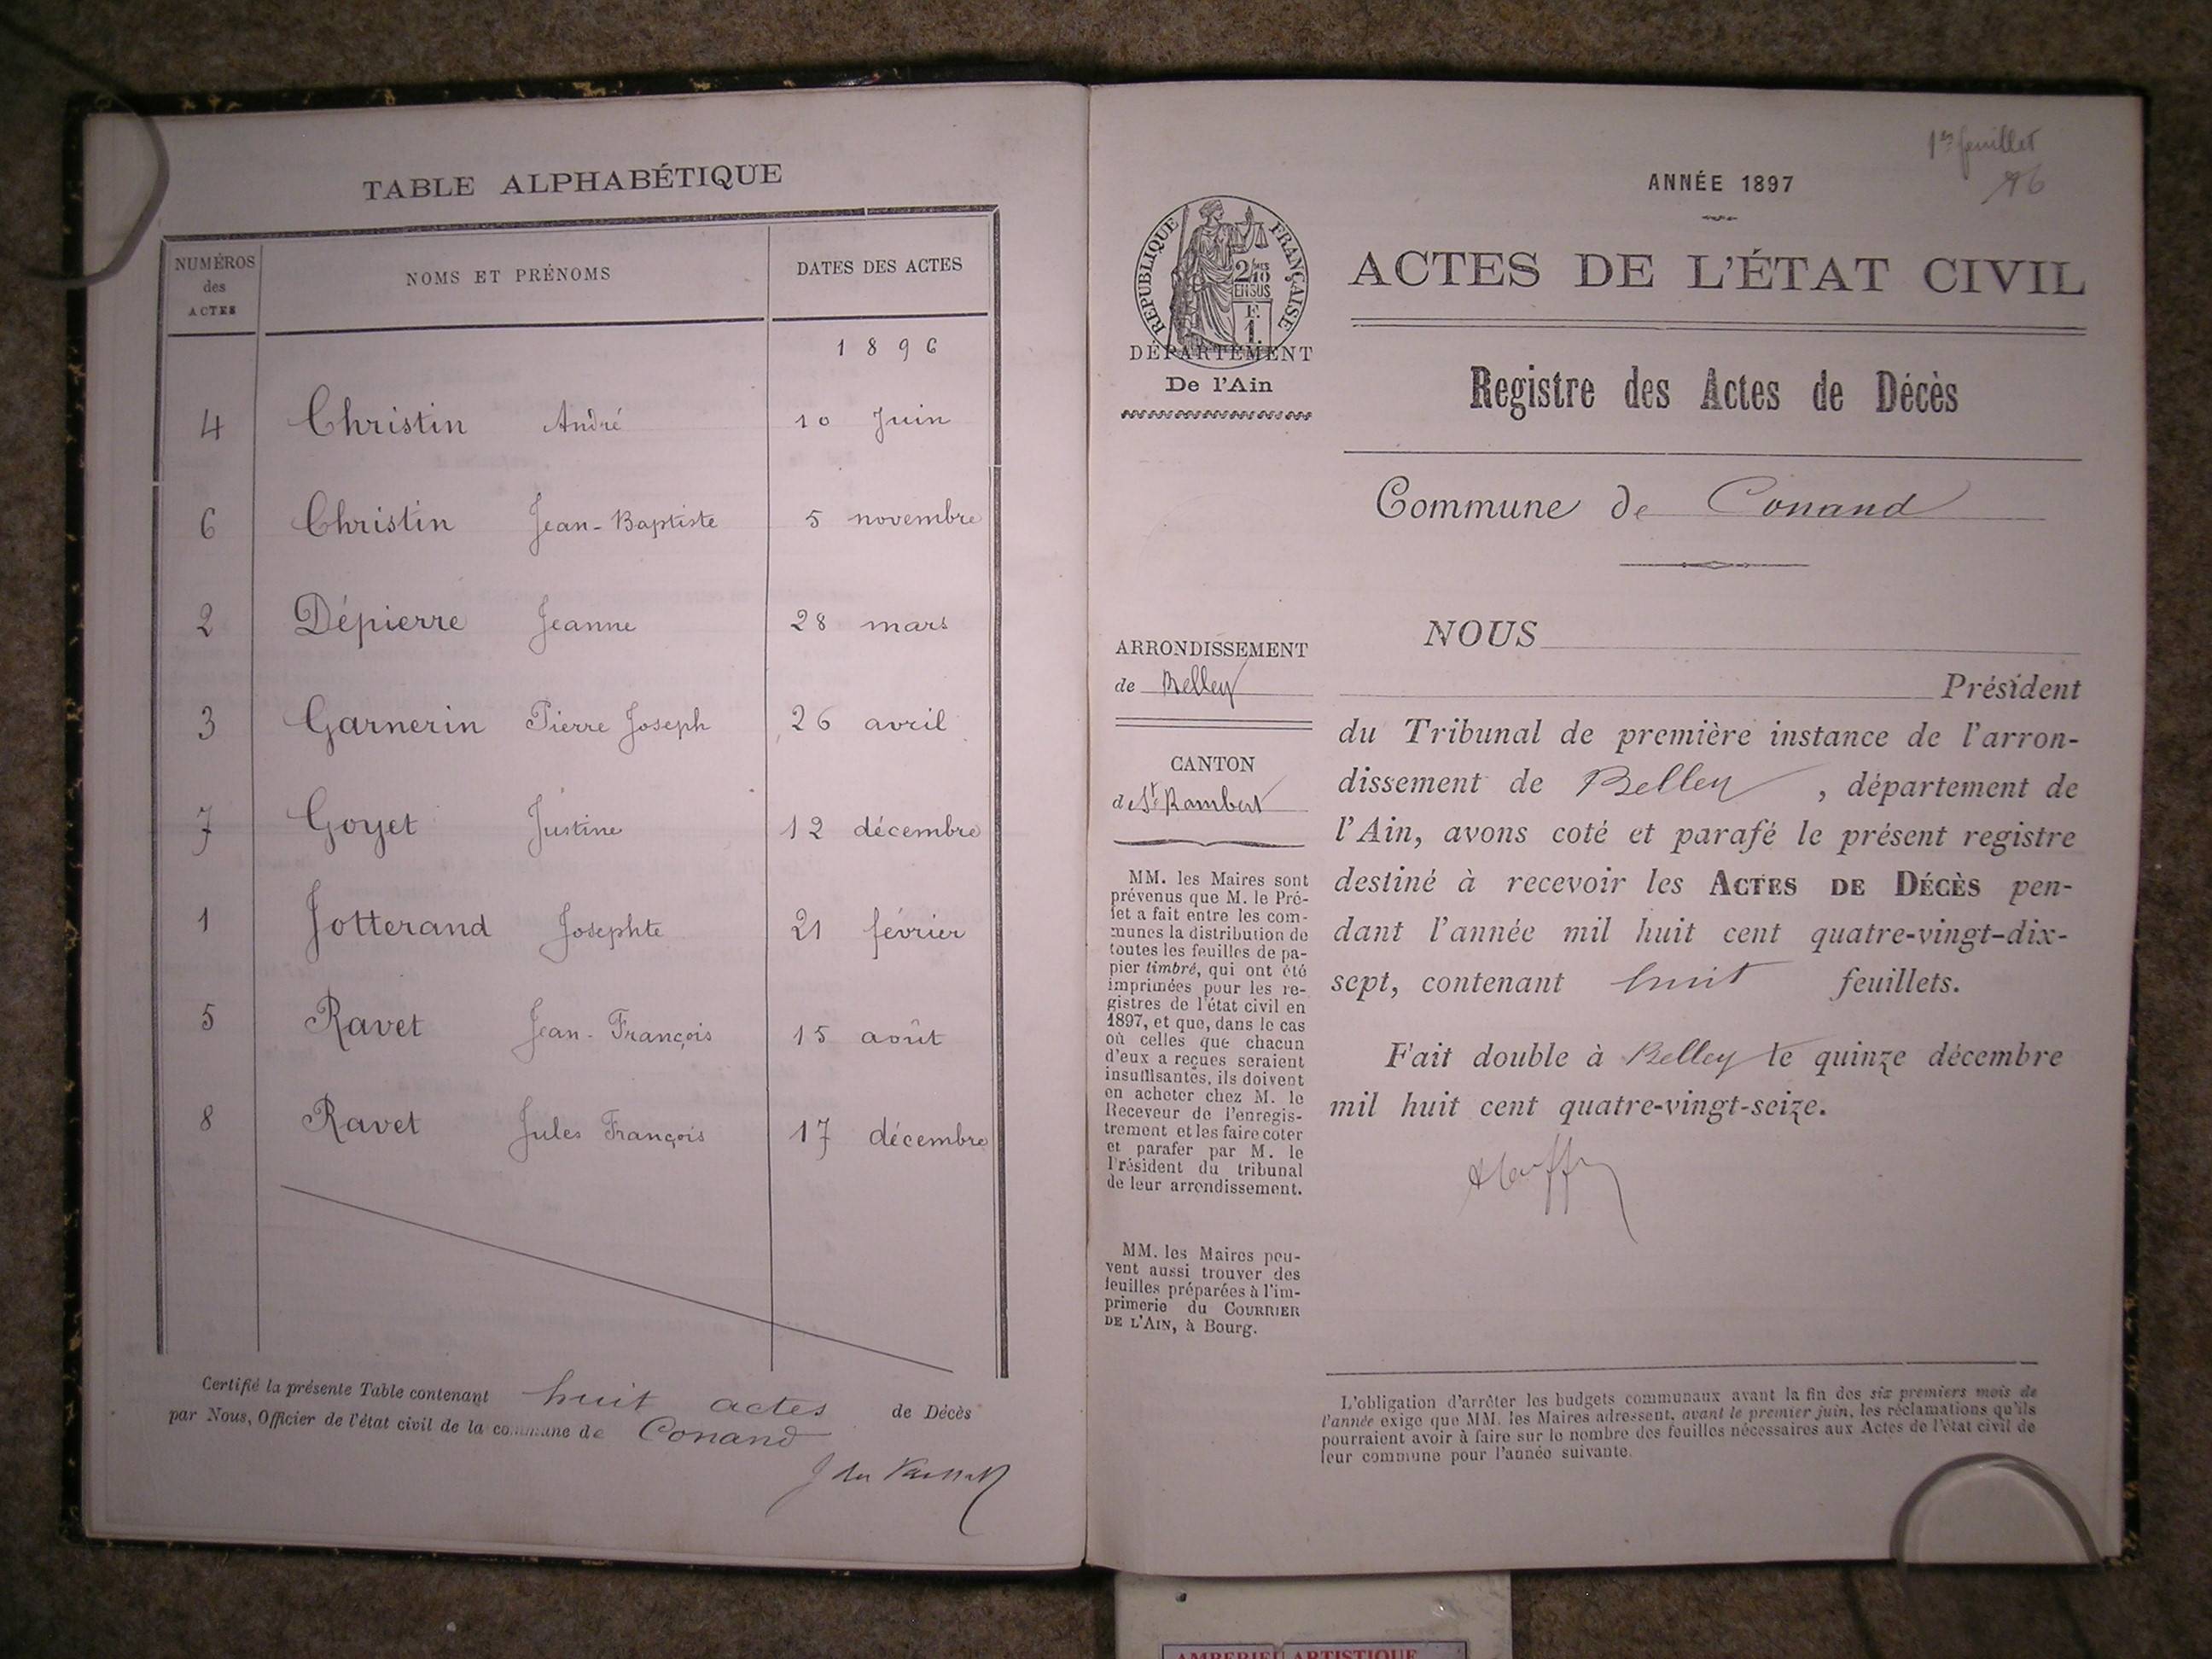 TABLE ALPHABÉTIQUE
NUMÉROS des ACTES
NOMS ET PRÉNOMS
DATES DES ACTES
1896
4 Christin André 10 Juin
6 Christin Jean-Baptiste 5 novembre
2 Dépierre Jeanne 28 mars
3 Garnerin Pierre Joseph 26 avril
7 Goyet Justine 12 décembre
1 Jotterand Josephte 21 février
5 Ravet Jean-François 15 août
8 Ravet Jules François 17 décembre
Certifié la présente Table contenant huit actes de Décès
par Nous, Officier de l'état civil de la commune de Conand
1er feuillet
96
ANNÉE 1897
ACTES DE L'ÉTAT CIVIL
Registre des Actes de Décès
Commune de Conand
RÉPUBLIQUE FRANÇAISE
2/10
EN SUS
F.
1.
DÉPARTEMENT
De l'Ain
ARRONDISSEMENT
de Belley
CANTON
de St Rambert
MM. les Maires sont
prévenus que M. le Pré-
fet a fait entre les com-
munes la distribution de
toutes les feuilles de pa-
pier timbré, qui ont été
imprimées pour les re-
gistres de l'état civil en
1897, et que, dans le cas
où celles que chacun
d'eux a reçues seraient
insuffisantes, ils doivent
en acheter chez M. le
Receveur de l'enregis-
trement et les faire coter
et parafer par M. le
Président du tribunal
de leur arrondissement.
MM. les Maires peu-
vent aussi trouver des
feuilles préparées à l'im-
primerie du COURRIER
DE L'AIN, à Bourg.
NOUS
Président
du Tribunal de première instance de l'arron-
dissement de Belley , département de
l'Ain, avons coté et parafé le présent registre
destiné à recevoir les ACTES DE DÉCÈS pen-
dant l'année mil huit cent quatre-vingt-dix-
sept, contenant huit feuillets.
Fait double à Belley le quinze décembre
mil huit cent quatre-vingt-seize.
L'obligation d'arrêter les budgets communaux avant la fin des six premiers mois de
l'année exige que MM. les Maires adressent, avant le premier juin, les réclamations qu'ils
pourraient avoir à faire sur le nombre des feuilles nécessaires aux Actes de l'état civil de
leur commune pour l'année suivante.
AMBERIEU ARTISTIQUE